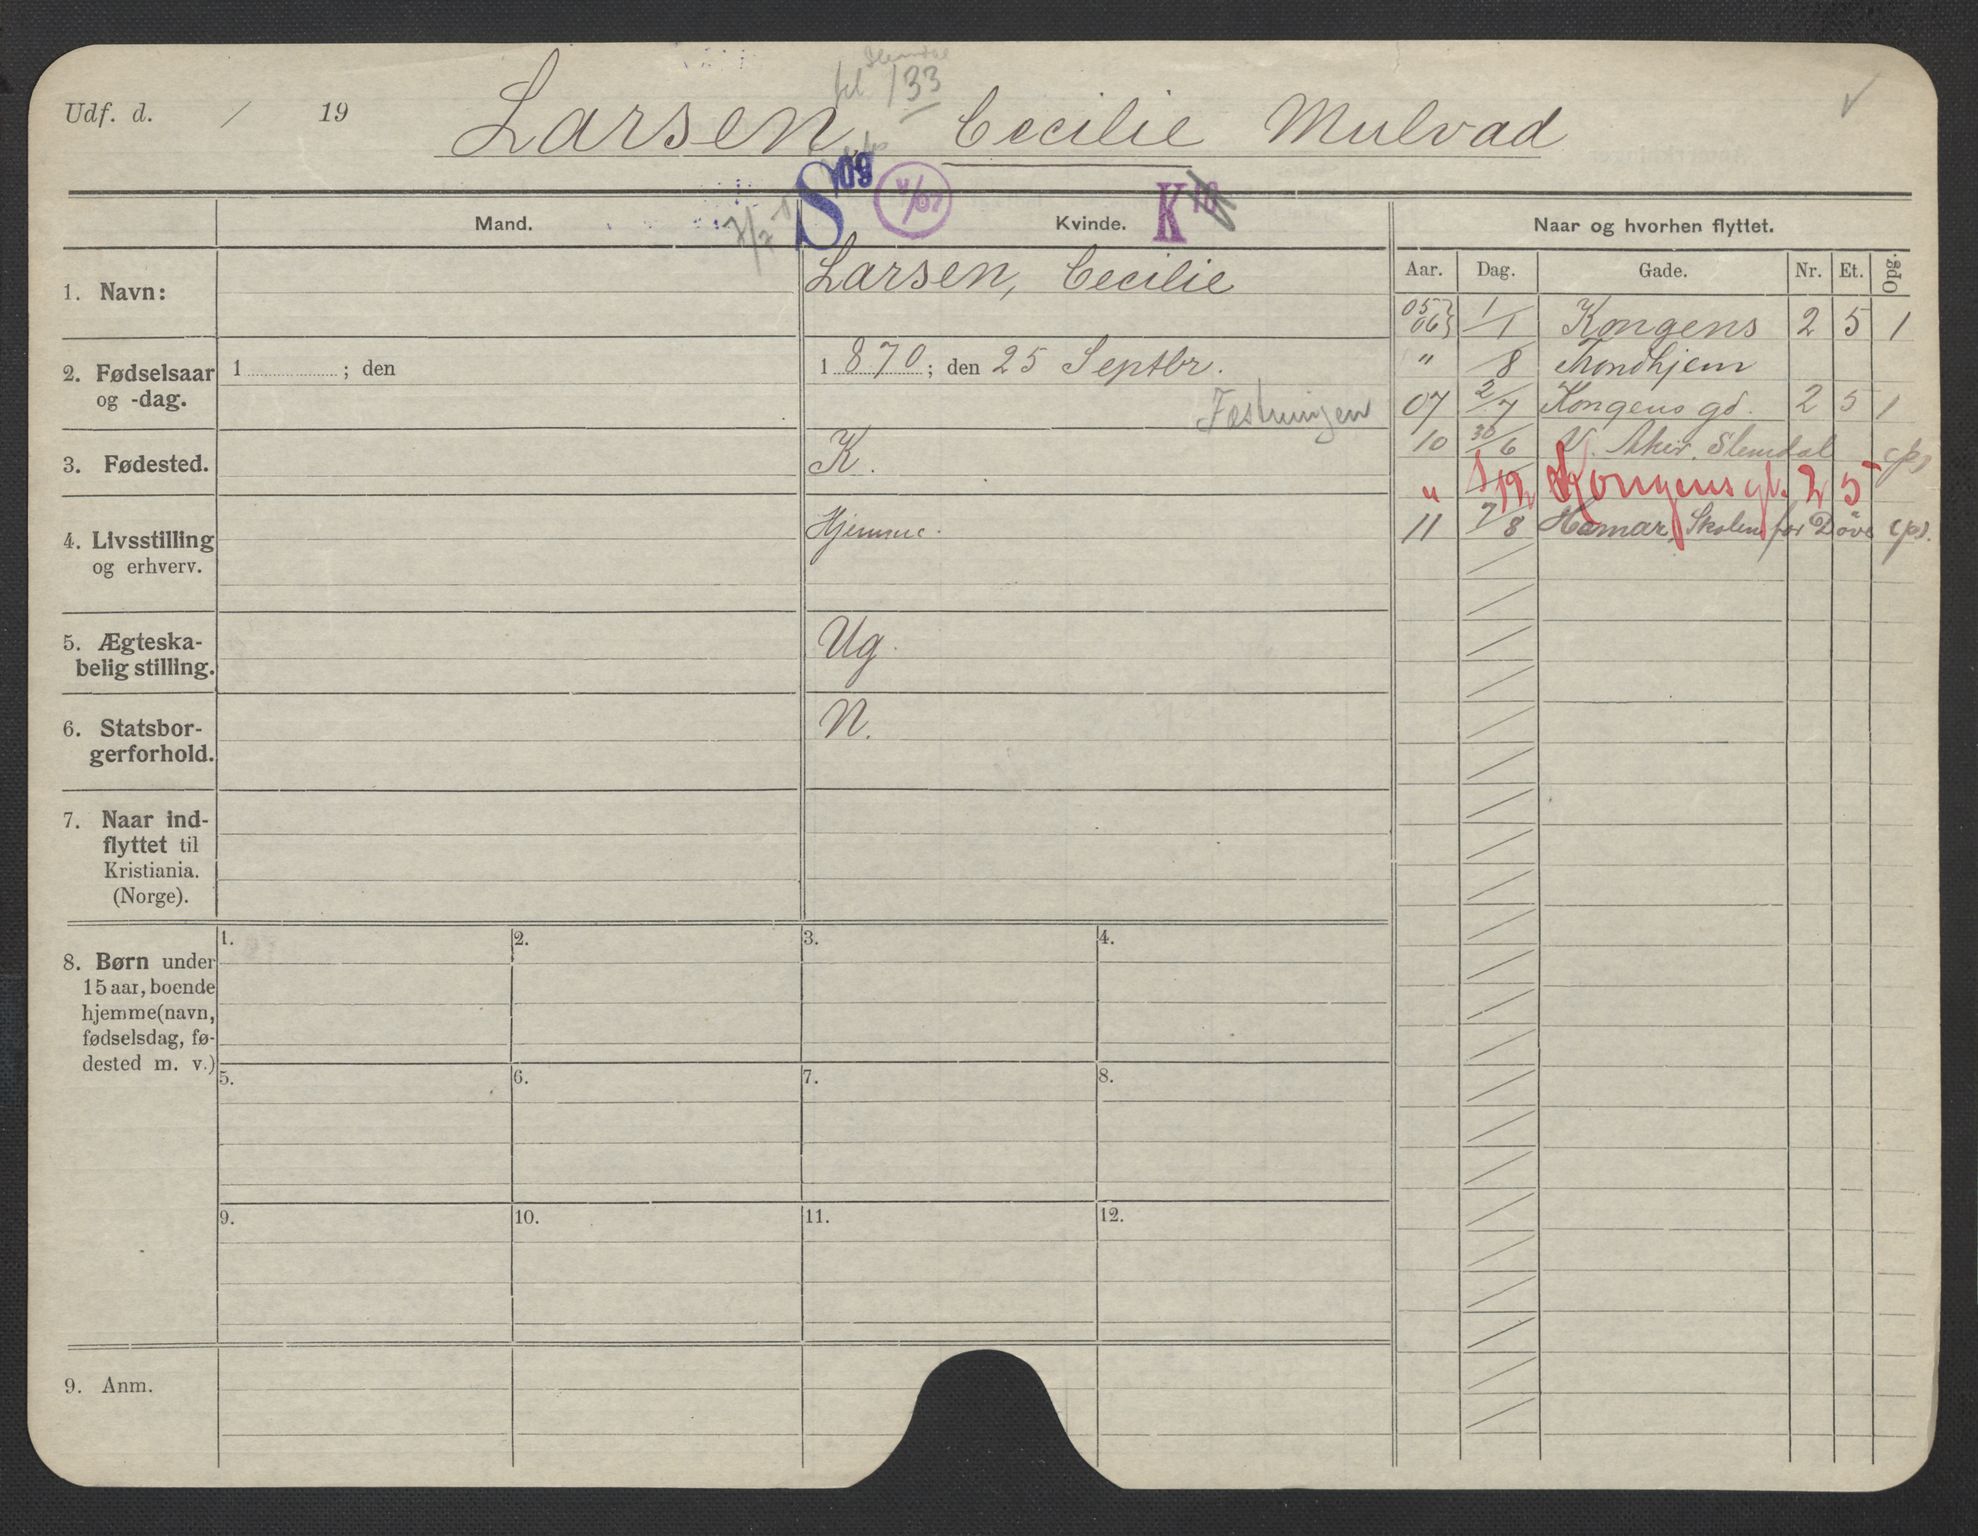 Slemdal
fl. 133
Udf. d. / 19
Larsen, Cecilie Mulvad
S 09
4/07
K 10
7/7
Mand.
Kvinde.
Naar og hvorhen flyttet.
Aar. Dag. Gade. Nr. Et. Opg.
1. Navn:
Larsen, Cecilie
2. Fødselsaar
og -dag.
1 ; den
1 870 ; den 25 Septbr.
Fæstningen
3. Fødested.
K.
4. Livsstilling
og erhverv.
Hjemme.
5. Ægteska-
belig stilling.
Ug.
6. Statsbor-
gerforhold.
N.
7. Naar ind-
flyttet til
Kristiania.
(Norge).
8. Børn under
15 aar, boende
hjemme (navn,
fødselsdag, fø-
dested m. v.)
1. 2. 3. 4.
5. 6. 7. 8.
9. 10. 11. 12.
9. Anm.
05 } 06 } 1/1 Kongens 2 5 1
" /8 Trondhjem
07 2/7 Kongens gd. 2 5 1
10 30/6 V. Aker. Slemdal (p)
" 1/12 Kongens gt. 2 5
11 7/8 Hamar, Skolen for Döve (p).